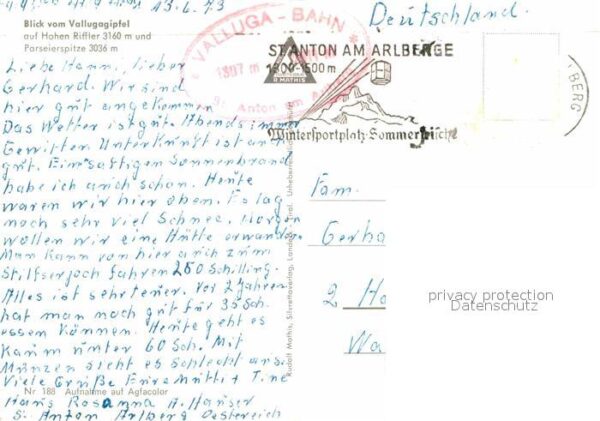 13.6.73
Deutschland.
Blick vom Vallugagipfel
auf Hohen Riffler 3160 m und
Parseierspitze 3036 m
VALLUGA-BAHN
St. Anton am
R.MATHIS
ST. ANTON AM ARLBERG
Wintersportplatz-Sommerfrische
BERG
Liebe Hanni, lieber
Gerhard. Wir sind
hier gut angekommen
Das Wetter ist gut. Abends immer
Gewitter. Unterkunft ist auch
gut. Ein saftigen Sonnenbrand
habe ich auch schon. Heute
waren wir hier oben. Es lag
noch sehr viel Schnee. Morgen
wollen wir eine Hütte erwandern
Man kann von hier auch zum
Stilfserjoch fahren 250 Schilling.
Alles ist sehr teuer. Vor 2 Jahren
hat man noch gut für 35 Sch.
essen können. Heute geht es
kaum unter 60 Sch. Mit
Münzen sieht es schlecht aus.
Viele Grüße Eure Mutti +
Hans Rosanna A. Hauser
S. Anton Arlberg Oesterreich
Nr. 188 Aufnahme auf Agfacolor
Rudolf Mathis, Silvrettaverlag, Landeck, Tirol.
Fam.
Gerha
2 Ha
Wa
privacy protection
Datenschutz